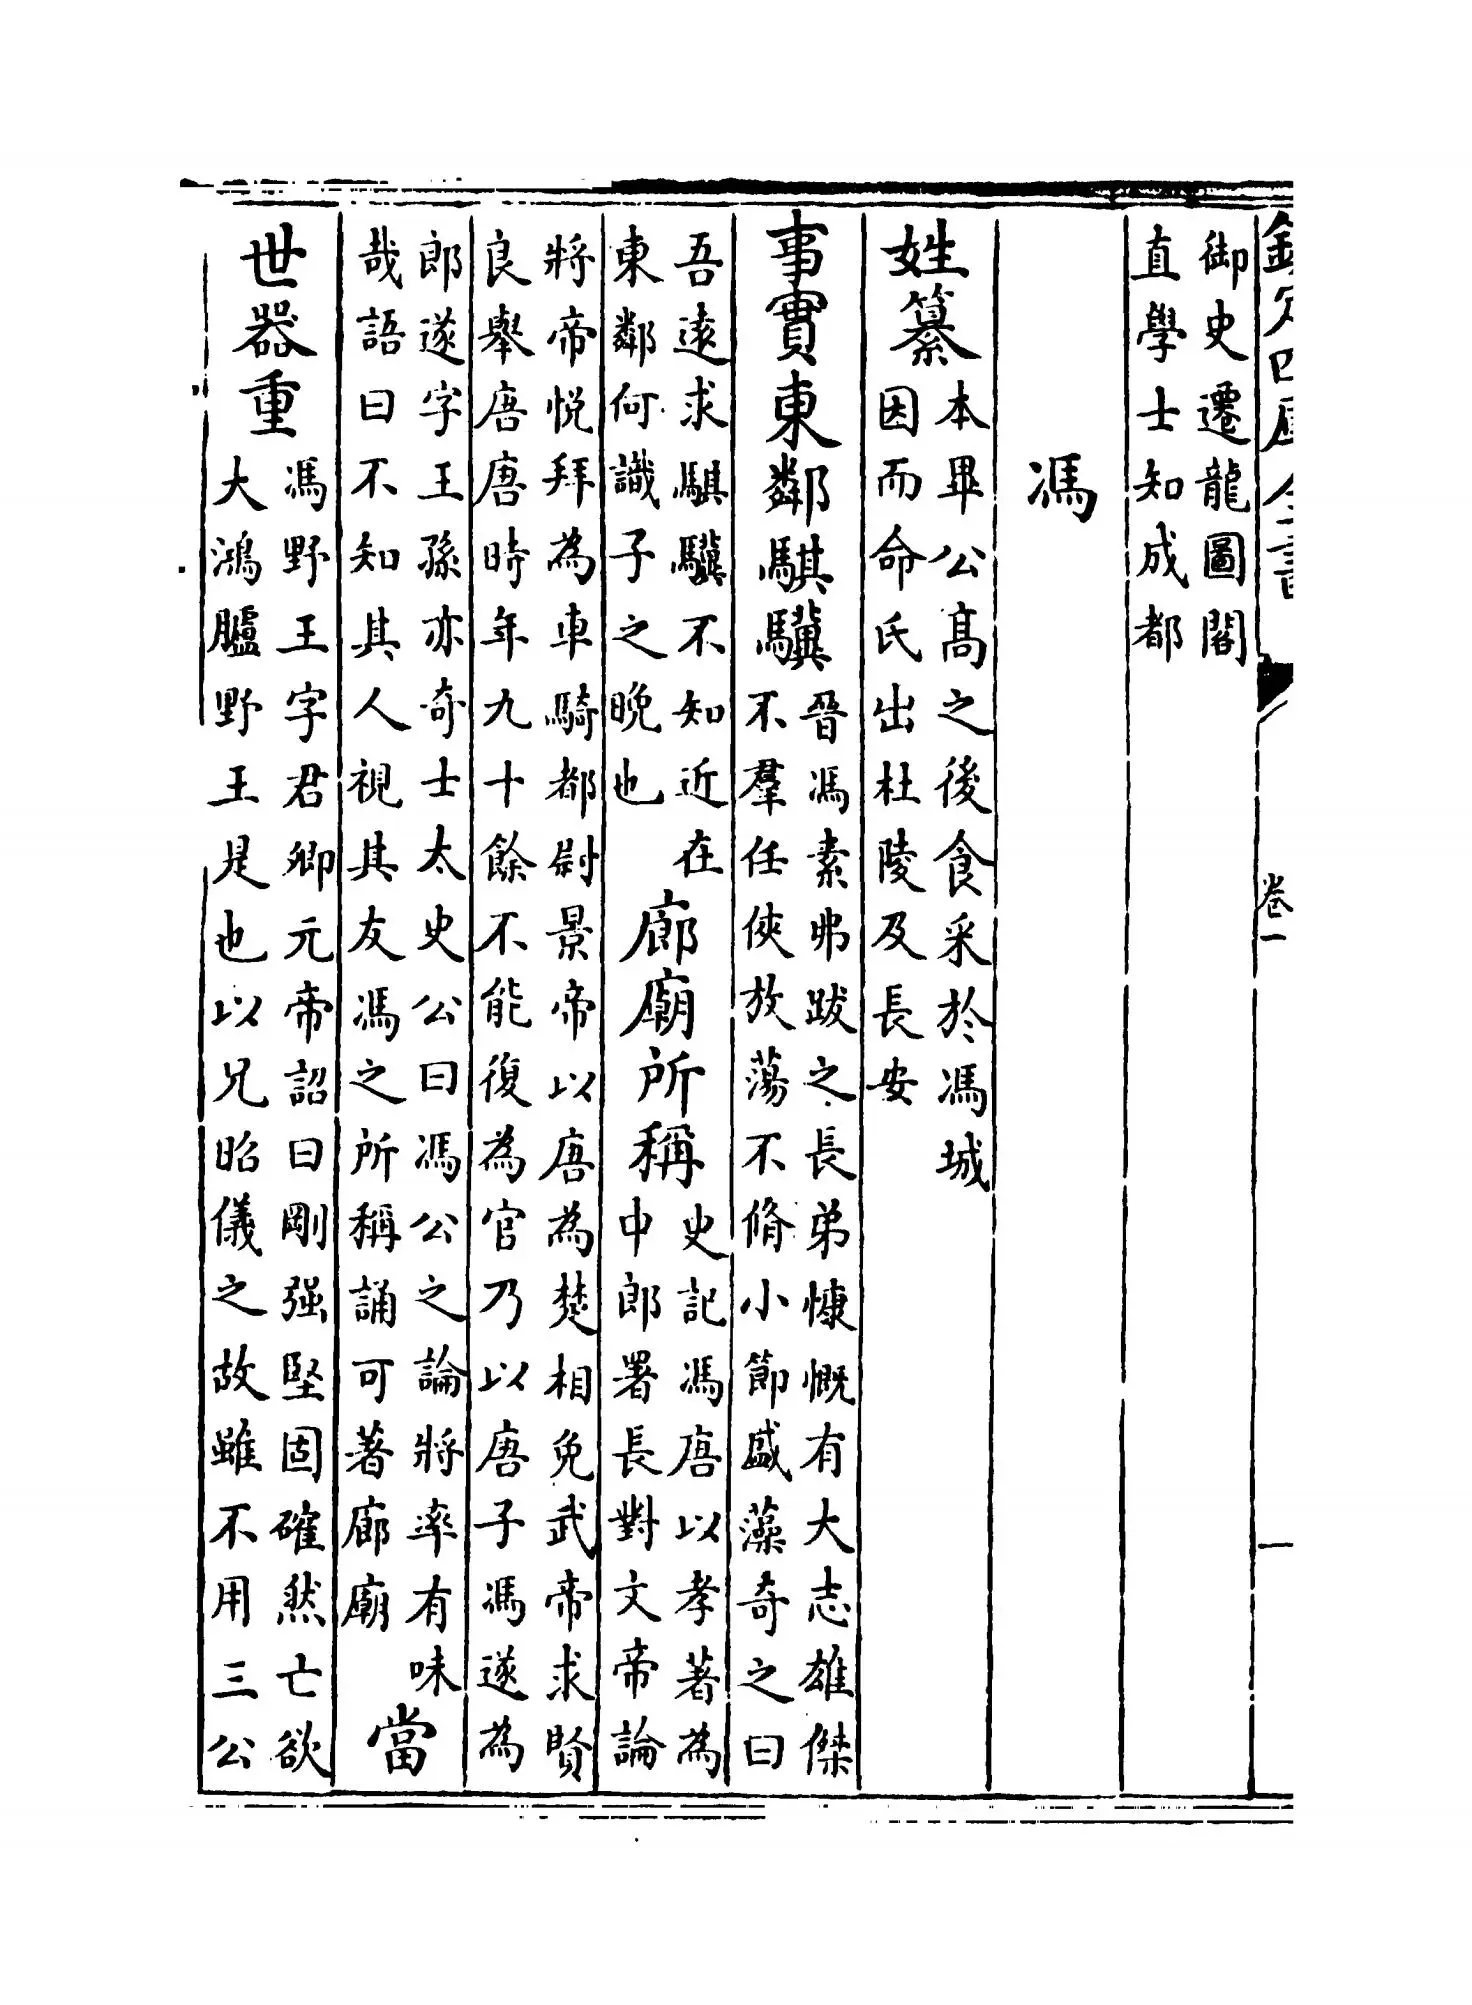 欽定四庫全書
卷一
一
御史遷龍圖閣
直學士知成都
馮
姓纂
本畢公高之後食采於馮城
因而命氏出杜陵及長安
事實東鄰騏驥
晉馮素弗跋之長弟慷慨有大志雄傑
不羣任俠放蕩不脩小節盛藻奇之曰
吾遠求騏驥不知近在
東鄰何識子之晚也
廊廟所稱
史記馮唐以孝著為
中郎署長對文帝論
將帝悦拜為車騎都尉景帝以唐為楚相免武帝求賢
良舉唐唐時年九十餘不能復為官乃以唐子馮遂為
郎遂字王孫亦奇士太史公曰馮公之論將率有味
哉語曰不知其人視其友馮之所稱誦可著廊廟
當
世器重
馮野王字君卿元帝詔曰剛强堅固確然亡欲
大鴻臚野王是也以兄昭儀之故雖不用三公